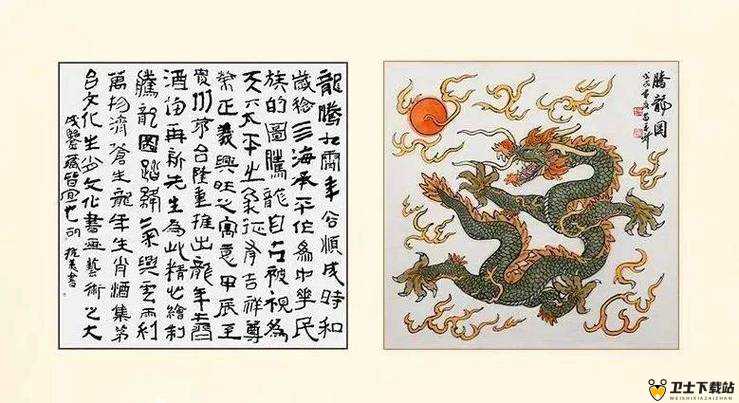 龍騰九霄年谷順成時和
歲稔亖海承平作為中華民
族的圖騰龍自古被視為
天下太平之象征有吉祥尊
榮正義興旺之寓意甲辰至
貴州茅台隆重推出龍年
酒由再新先生為此精心繪制
騰龍圖踏興雲雨利
萬物濟蒼生龍年生肖酒集茅
台文化生肖文化書畫藝術之大
成鑒藏皆宜也書
騰龍圖
卫士下载站
WEISHIXIAZAIZHAN